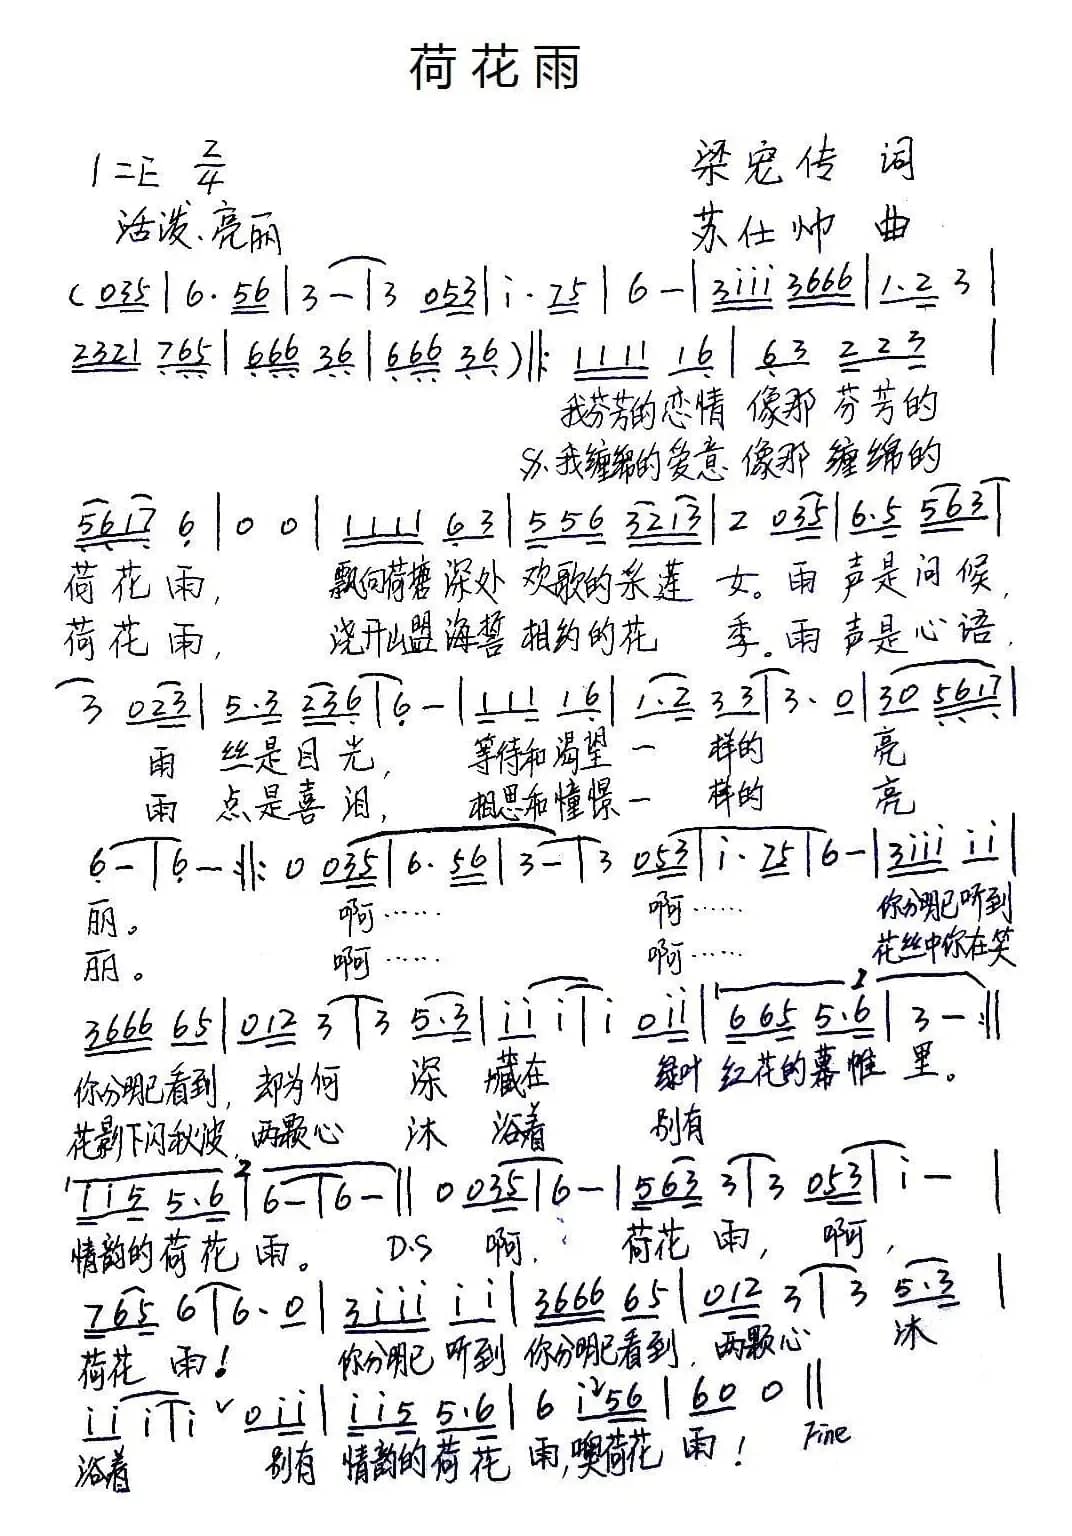 荷花雨
1=E 2/4
梁宠传 词
活泼、亮丽
苏仕帅 曲
(035|6·56|3-|3 053|i·75|6-|3iii 3666|1·2 3|
2321 765|666 36|666 36)‖:1111 16|63 223|
我芬芳的恋情 像那 芬芳的
我缠绵的爱意 像那 缠绵的
5617 6|0 0|1111 63|556 3213|2 035|6·5 563|
荷花雨, 飘向荷塘深处 欢歌的采莲 女。雨 声是问候,
荷花雨, 浇开山盟海誓 相约的花 季。雨 声是心语,
3 023|5·3 236|6-|111 16|1·2 33|3·0|30 5617|
雨 丝是目光, 等待和渴望一 样的 亮
雨 点是喜泪, 相思和憧憬一 样的 亮
6-|6-:‖:0 035|6·56|3-|3 053|i·75|6-|3iii ii|
丽。 啊…… 啊…… 你分明已听到
丽。 啊…… 啊…… 花丝中你在笑
3666 65|012 3|3 5·3|ii i|i 0ii|665 5·6|3-:‖
你分明已看到, 却为何 深 藏在 绿叶 红花的幕帷 里。
花影下闪秋波, 两颗心 沐 浴着 别有
ii5 5·6|6-|6-‖0 035|6-|563 3|3 053|i-|
情韵的荷花 雨。 D.S 啊, 荷花 雨, 啊,
765 6|6·0|3iii ii|3666 65|012 3|3 5·3|
荷花 雨! 你分明已 听到 你分明已看到, 两颗心 沐
ii i|i 0ii|ii5 5·6|6 i56|60 0‖
浴着 别有 情韵的荷花 雨,噢荷花 雨! Fine